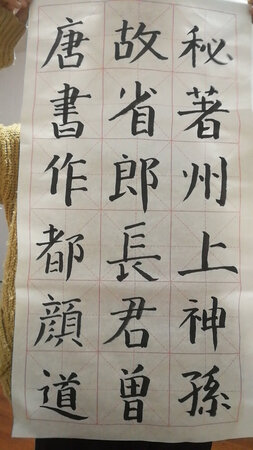 唐故秘
書省著
作郎州
都長上
顔君神
道曾孫